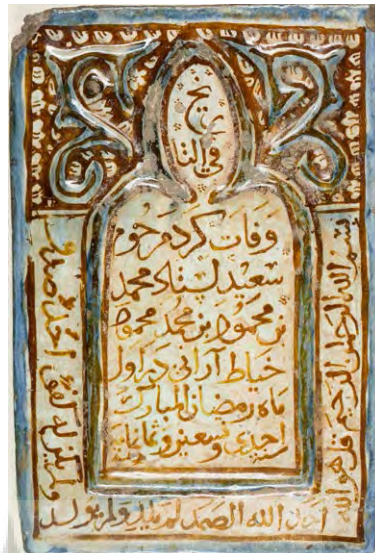 في التاريخ
وفات کرد مرحوم
سعید استاد محمد
بن محمود بن محمد محمود
خیاط آرانی در اول
ماه رمضان المبارک
احدی و سعین و ثمانمایة
بسم الله الرحمن الرحیم قل هو الله
احد الله الصمد لم یلد ولم یولد
ولم یکن له کفوا احد